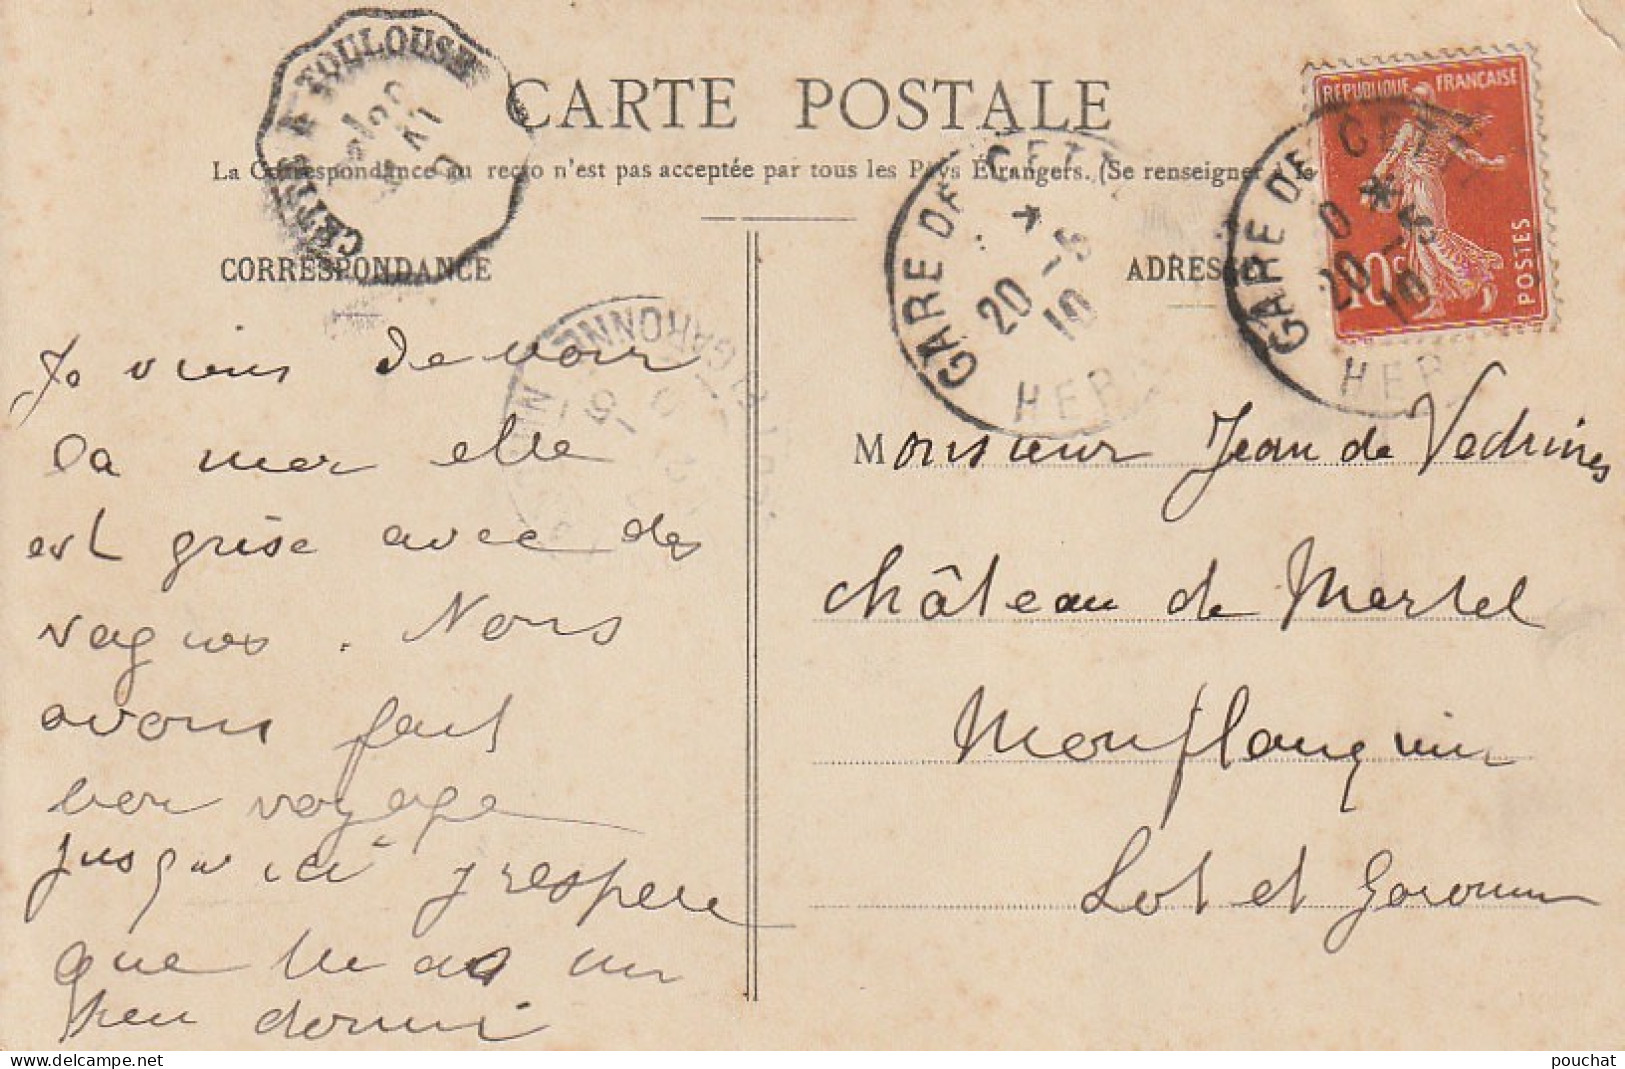 CETTE A TOULOUSE
CARTE POSTALE
La Correspondance au recto n'est pas acceptée par tous les Pays Étrangers. (Se renseigner à la
CORRESPONDANCE
ADRESSE
REPUBLIQUE FRANÇAISE
10c
POSTES
GARE DE CETTE
20 -5
10
HER
GARE DE CETTE
20 -5
10
HER
GARONNE
Je viens de voir
la mer elle
est grise avec des
vagues. Nous
avons fait
bon voyage
jusqu'ici j'espere
que tu as un
peu dormi
Monsieur Jean de Vedrines
Château de Martel
Monflanquin
Lot et Garonne
www.delcampe.net
pouchat